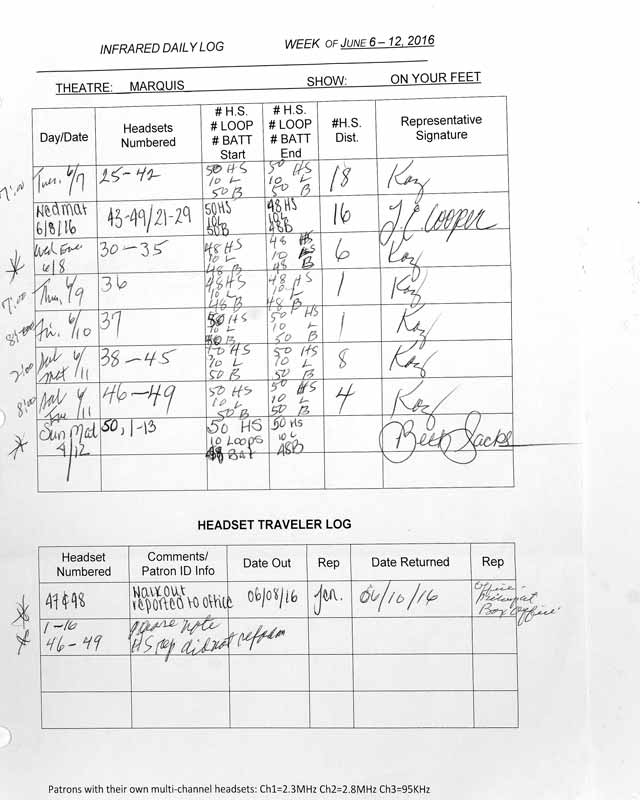 INFRARED DAILY LOG WEEK OF JUNE 6 – 12, 2016
THEATRE: MARQUIS SHOW: ON YOUR FEET
Day/Date Headsets Numbered # H.S. # LOOP # BATT Start # H.S. # LOOP # BATT End #H.S. Dist. Representative Signature
7:00 Tues, 6/7 25-42 50 HS 10 L 50 B 50 HS 10 L 50 B 18 Kay
Wed Mat 6/8/16 43-49/21-29 50HS 10L 50B 48HS 10L 48B 16 J.E. Cooper
* Wed Eve 6/8 30-35 48 HS 10 L 48 B 48 HS 10 48 B 6 Kay
7:00 Thu, 6/9 36 48 HS 10 L 48 B 48 HS 10 L 48 B 1 Kay
Fri. 6/10 37 50 HS 10 L 50 B 50 HS 10 L 50 B 1 Kay
2:00 Sat Mat 6/11 38-45 50 HS 10 L 50 B 50 HS 10 L 50 B 8 Kay
8:00 Sat Eve 6/11 46-49 50 HS 10 L 50 B 50 HS 10 L 50 B 4 Kay
* Sun Mat 50, 1-13 50 HS 10 Loops Bat 50 HS 10 L 48B Beth Sacks
HEADSET TRAVELER LOG
Headset Numbered Comments/ Patron ID Info Date Out Rep Date Returned Rep
* 47&48 Walkout reported to office 06/08/16 Jen. 06/10/16 Office Box office
1-16 please note
* 46-49 HS rep did not
Patrons with their own multi-channel headsets: Ch1=2.3MHz Ch2=2.8MHz Ch3=95KHz